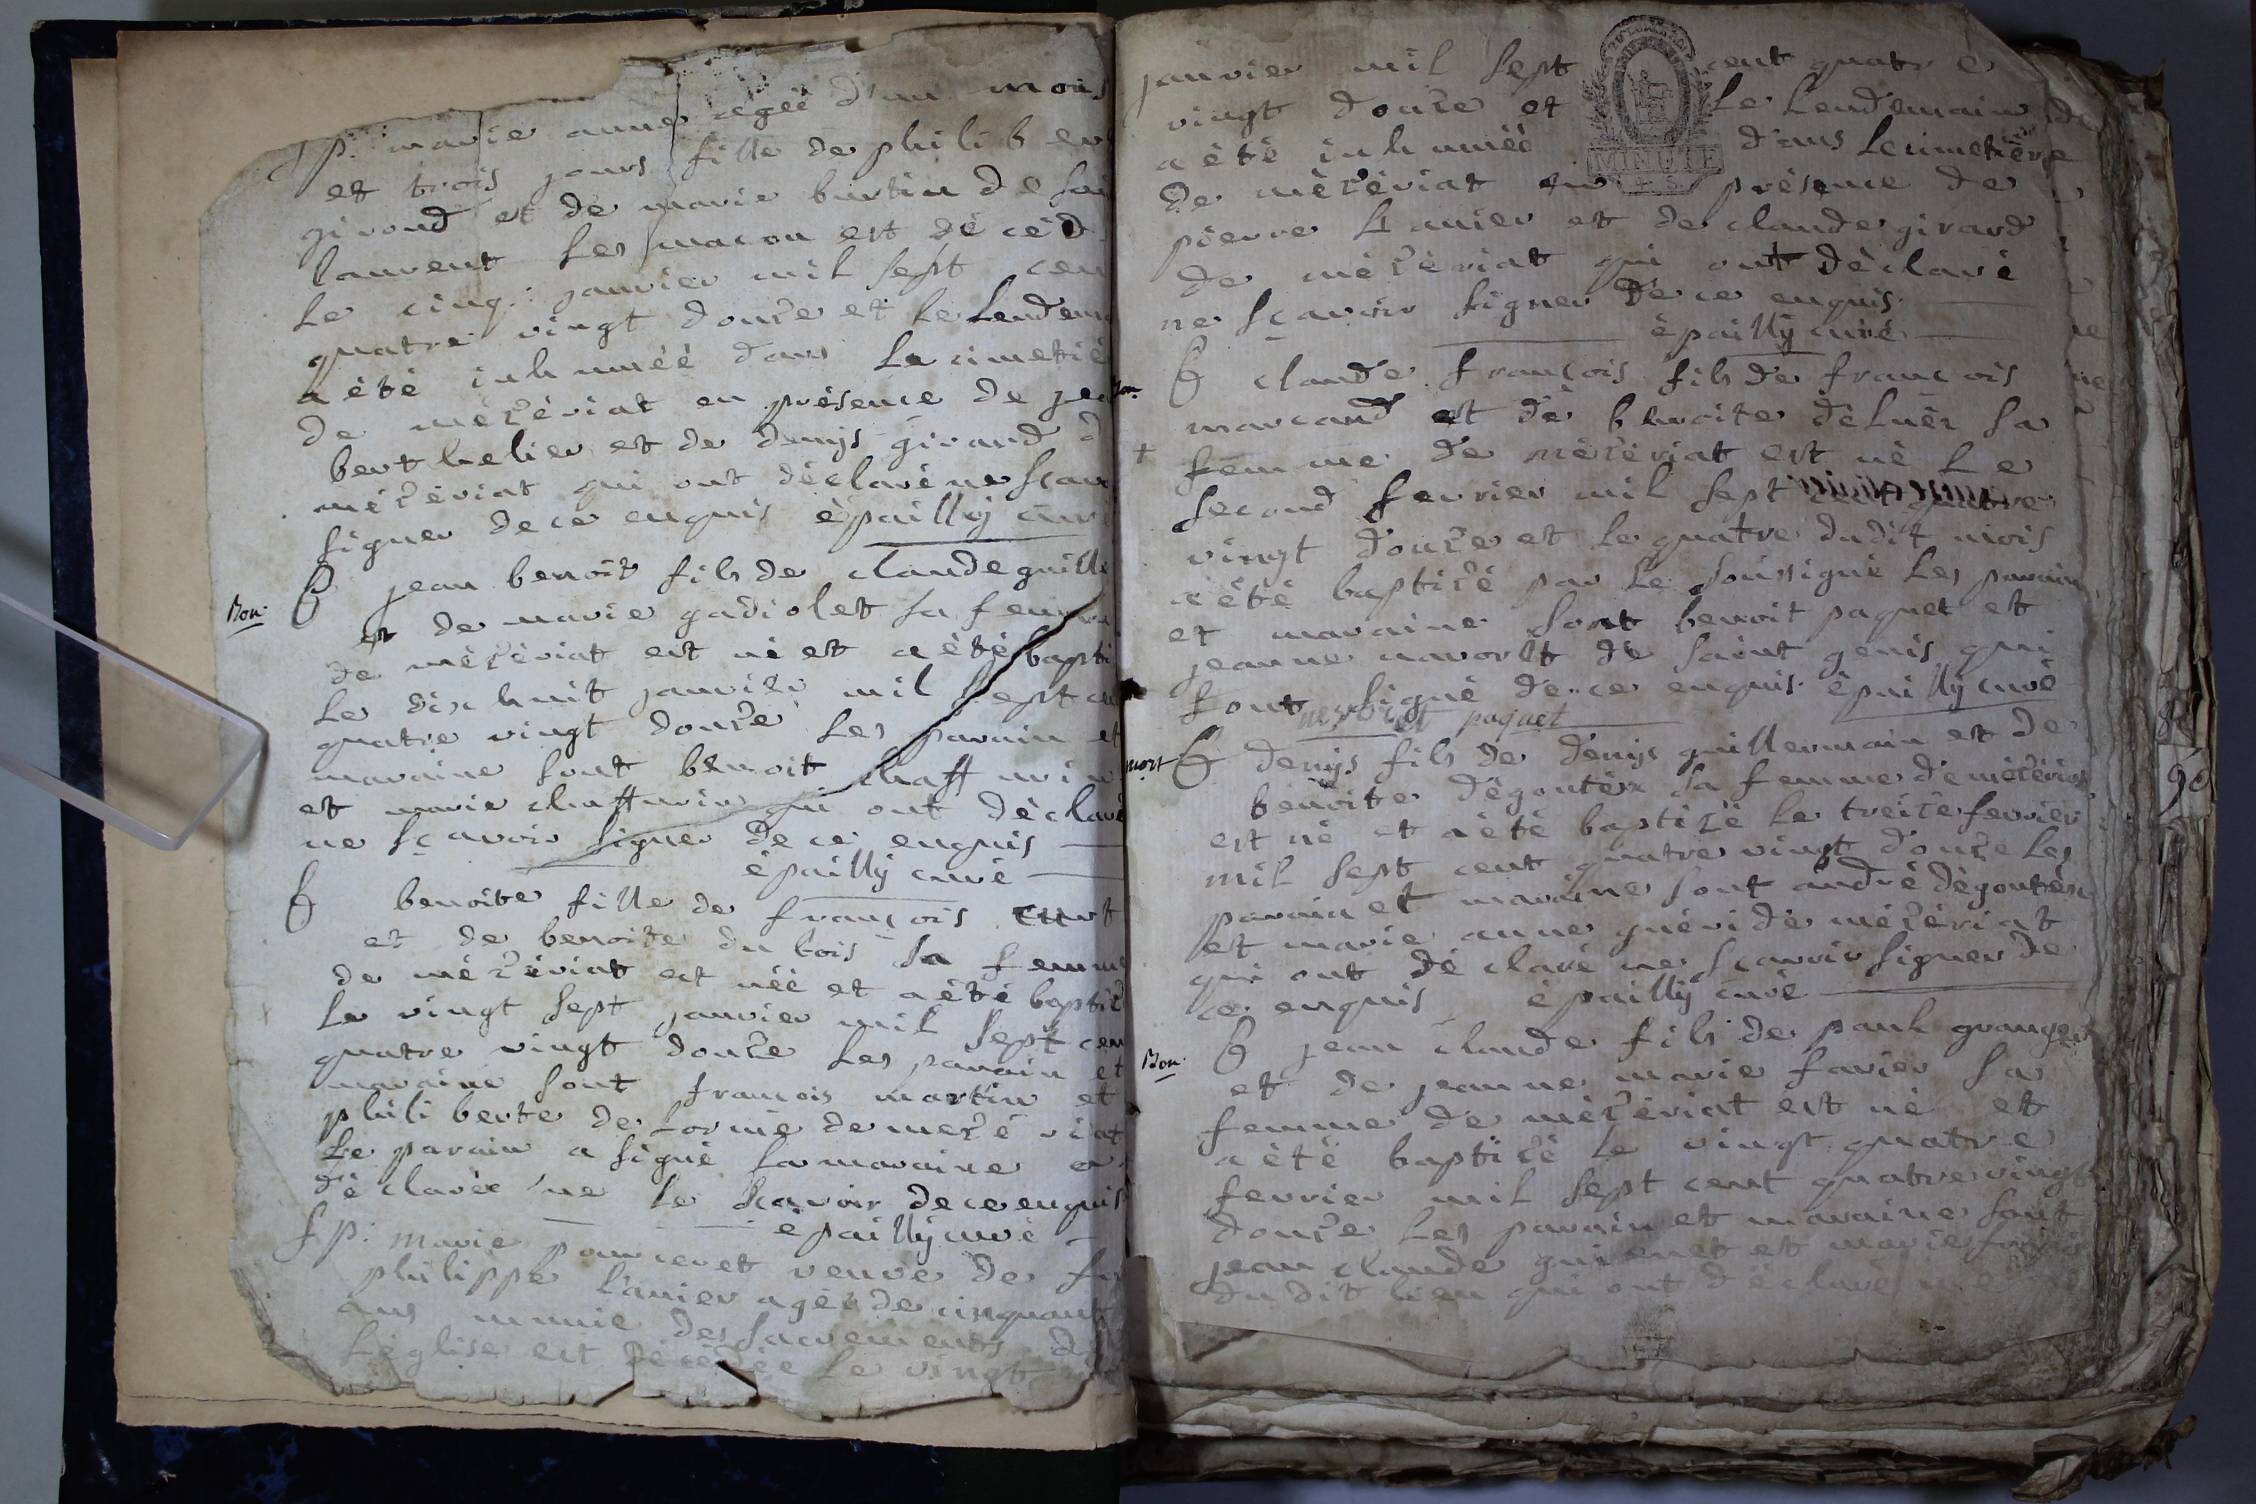 Sp. marie anne agéé d'un mois
et trois jours fille de philibert
girond et de marie burtin de sai
laurent les macon est décéd
le cinq janvier mil sept cen
quatre vingt douze et le lendema
a été inhuméé dans le cimetiè
de mézériat en présence de jea
berthelier et de denys girand d
mézériat qui ont déclaré ne scav
signer de ce enquis épailly curé
B jean benoit fils de claude guille
Bon.
et de marie gadiolet sa femme
de mézériat est né et a été bapti
le dix huit janvier mil sept cen
quatre vingt douze les parain et
maraine sont benoit chaffurin
et marie chaffurin qui ont déclaré
ne sçavoir signer de ce enquis
épailly curé
B benoite fille de françois
et de benoite du bois sa femme
de mézériat est néé et a été baptiz
le vingt sept janvier mil sept cen
quatre vingt douze les parain et
maraine sont francois martin et
philiberte de lorme de mezé riat
le parain a signé la maraine a
déclaréé ne le scavoir de ce enquis
épailly curé
Sp. marie pourceret veuve de fu
philippe lanier agéé de cinquant
ans munie des sacrements de
l'église est décédéé le vingt
janvier mil sept cent quatre
vingt douze et le lendemain
a été inhuméé dans le cimetière
MINUTE
de mézériat en présence de
pierre lanier et de claude girard
de mézériat qui ont déclaré
ne sçavoir signer de ce enquis.
épailly curé
Bon.
B claude françois fils de françois
marcand et de benoite deluèz sa
+ femme de mézériat est né le
second fevrier mil sept cent quatre
vingt douze et le quatre dudit mois
a été baptizé par le soussigné les parain
et maraine sont benoit paquet et
jeanne navorlt de saint genis qui
sont signé de ce enquis. épailly curé
paquet
mort B denys fils de denys guillermain et de
benoite dégoutèz sa femme de mézériat
est né et a été baptizé le treize fevrier
mil sept cent quatre vingt douze les
parain et maraine sont andré dégoutèz
et marie anne guéri de mézériat
qui ont déclaré ne sçavoir signer de
ce enquis épailly curé
Bon.
B jean claude fils de paul granger
et de jeanne marie favier sa
femme de mézériat est né et
a été baptizé le vingt quatre
fevrier mil sept cent quatre vingt
douze les parain et maraine sont
jean claude guivenet et marie
du dit lieu qui ont déclaré ne